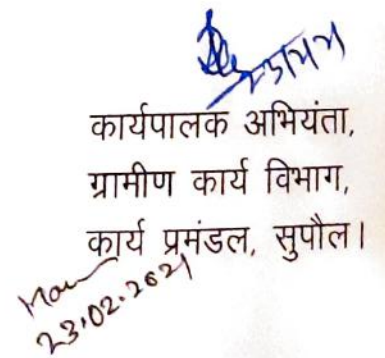 कार्यपालक अभियंता,
ग्रामीण कार्य विभाग,
कार्य प्रमंडल, सुपौल।
23.02.2021